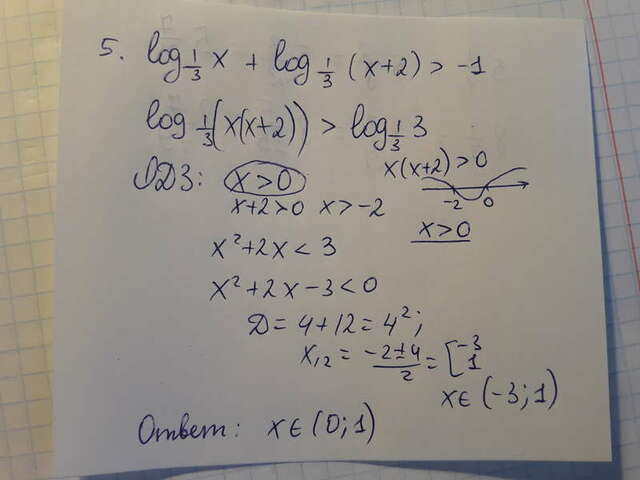 5. log_{1/3} x + log_{1/3} (x+2) > -1
log_{1/3} (x(x+2)) > log_{1/3} 3
ОДЗ: x>0
x+2>0 x>-2
x(x+2)>0
-2 0
x>0
x²+2x<3
x²+2x-3<0
D=4+12=4²;
x₁,₂ = (-2±4)/2 = [-3 1
x∈(-3;1)
Ответ: x∈(0;1)